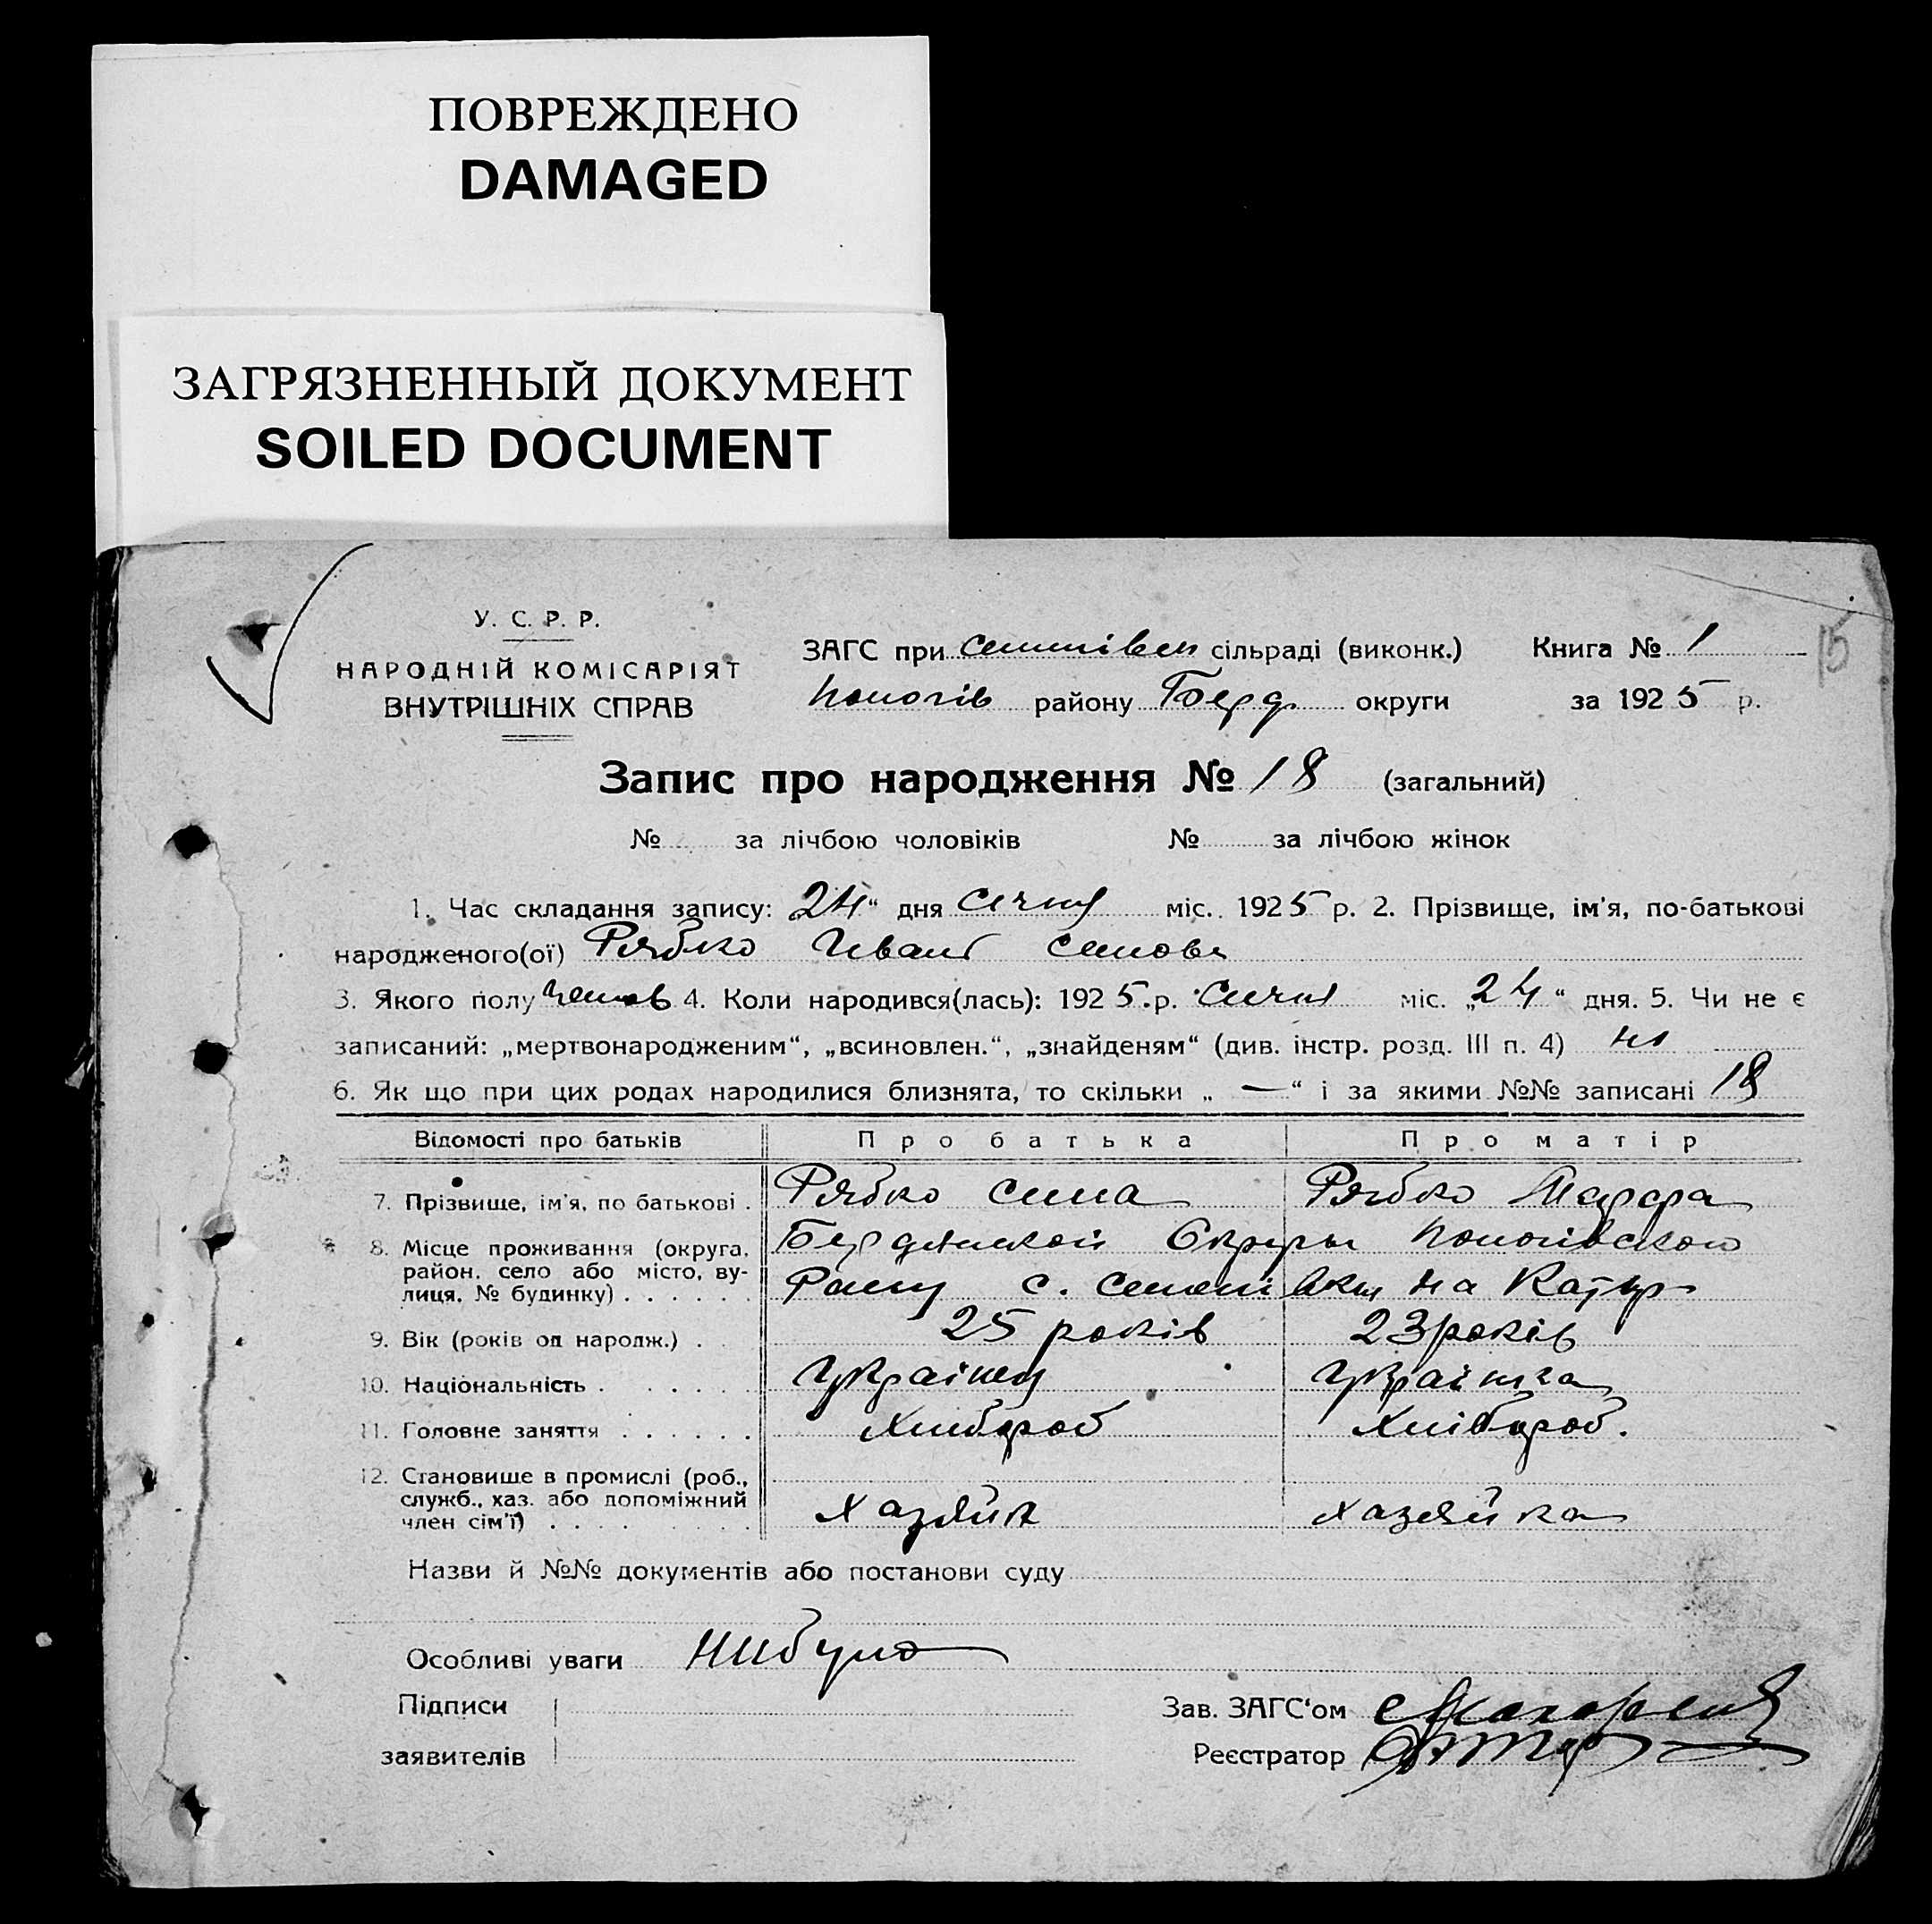 ПОВРЕЖДЕНО
DAMAGED
ЗАГРЯЗНЕННЫЙ ДОКУМЕНТ
SOILED DOCUMENT
У. С. Р. Р.
НАРОДНІЙ КОМІСАРІЯТ
ВНУТРІШНІХ СПРАВ
ЗАГС при сільраді (виконк.) Книга № 1
Пологів району Берд. округи за 1925 р.
15
Запис про народження № 18 (загальний)
№ за лічбою чоловіків № за лічбою жінок
1. Час складання запису: 24" дня Січня міс. 1925 р. 2. Прізвище, ім'я, по-батькові
народженого(ої) Рябко Иван
3. Якого полу 4. Коли народився(лась): 1925.р. Січня міс. „24" дня. 5. Чи не є
записаний: „мертвонародженим", „всиновлен.", „знайденям" (див. інстр. розд. III п. 4) ні
6. Як що при цих родах народилися близнята, то скільки „—" і за якими №№ записані 18
Відомості про батьків Про батька Про матір
7. Прізвище, ім'я, по батькові . Рябко Сима Рябко Марфа
8. Місце проживання (округа, район, село або місто, вулиця, № будинку) . . . . . . Бердянской Округи Пологівского
с. на
9. Вік (років од народж.) . . 25 років 23 років
10. Національність . . . . . . Українец Українка
11. Головне заняття . . . . . . Хлібороб Хлібороб.
12. Становище в промислі (роб., служб., хаз. або допоміжний член сім'ї) . . . . . . Хазяйн Хазяйка
Назви й №№ документів або постанови суду
Особливі уваги Нибуло
Підписи
заявителів
Зав. ЗАГС'ом
Реєстратор